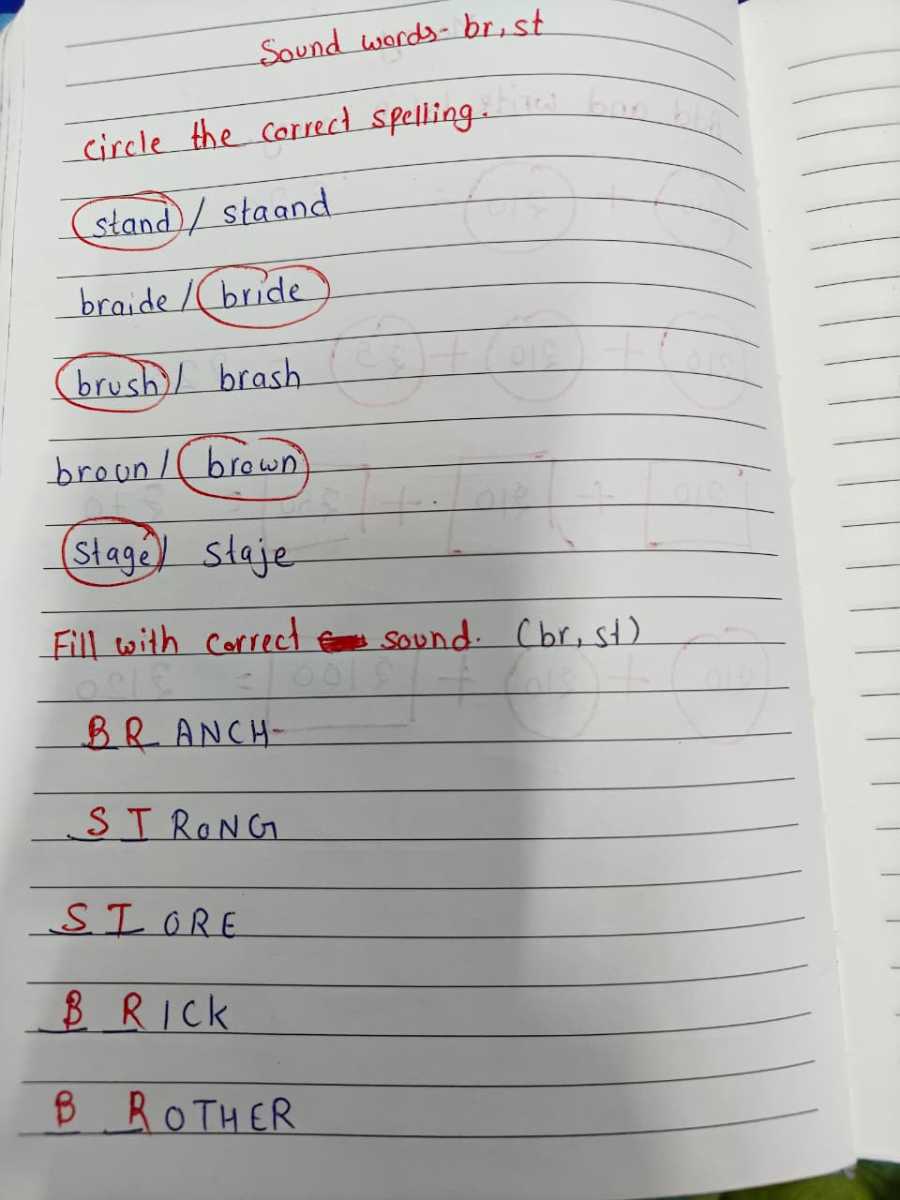 Sound words- br, st
circle the correct spelling.
stand / staand
braide / bride
brush / brash
broun / brown
Stage / staje
Fill with correct sound. (br, st)
BR ANCH
ST RONG
ST ORE
B R ICK
B R OTHER